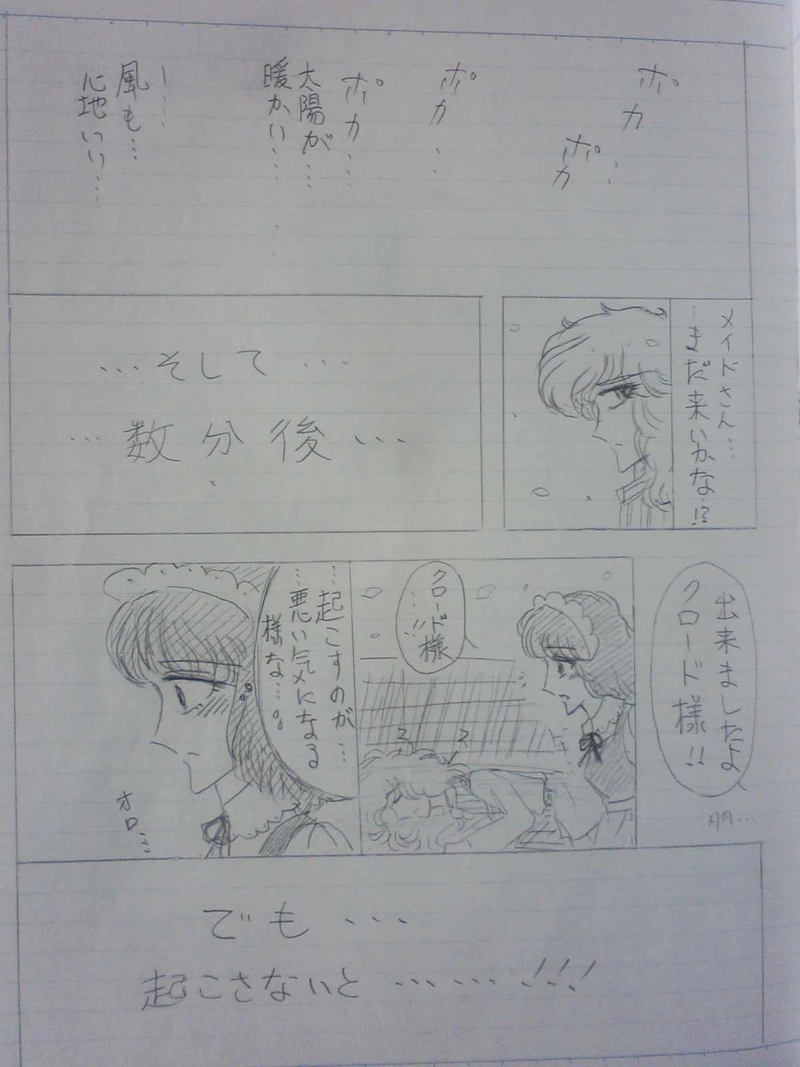 ポカ…
ポカ
ポカ…
ポカ…
太陽が…
暖かい…
…
風も…
心地いい…
メイドさん…
…まだ来いかな…!?
…そして…
…数分後…
出来ましたよ
クロード様!!
クロード様
…!!
スー
…起こすのが…
…悪い気メになる
様な…。
オロ…
でも…
起こさないと……!!!